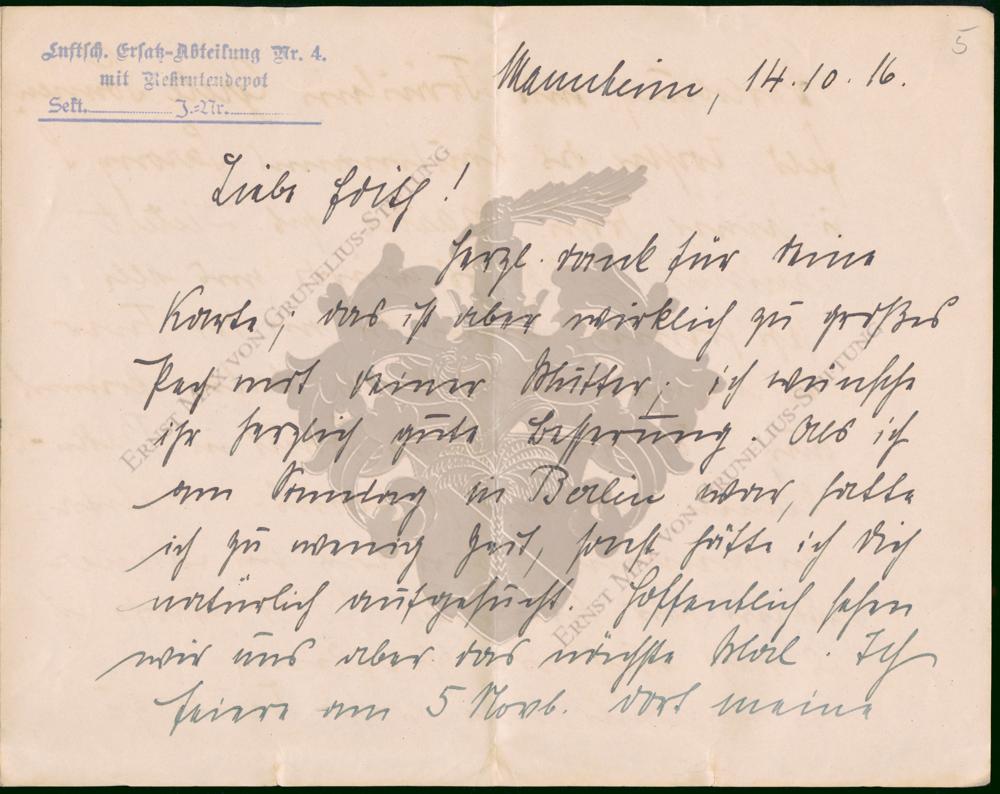 5
Luftsch. Ersatz-Abteilung Nr. 4.
mit Rekrutendepot
Sekt. J.-Nr.
Mannheim, 14.10.16.
Liebe Edith!
Herzl. dank für deine
Karte; das ist aber wirklich zu großes
Pech mit deiner Mutter; ich wünsche
ihr herzlich gute Besserung. Als ich
am Sonntag in Berlin war, hatte
ich zu wenig Zeit, sonst hätte ich dich
natürlich aufgesucht. Hoffentlich sehen
wir uns aber das nächste Mal. Ich
feiere am 5 Novb. dort meine
Ernst Max von Grunelius-Stiftung
Ernst Max von Grunelius-Stiftung